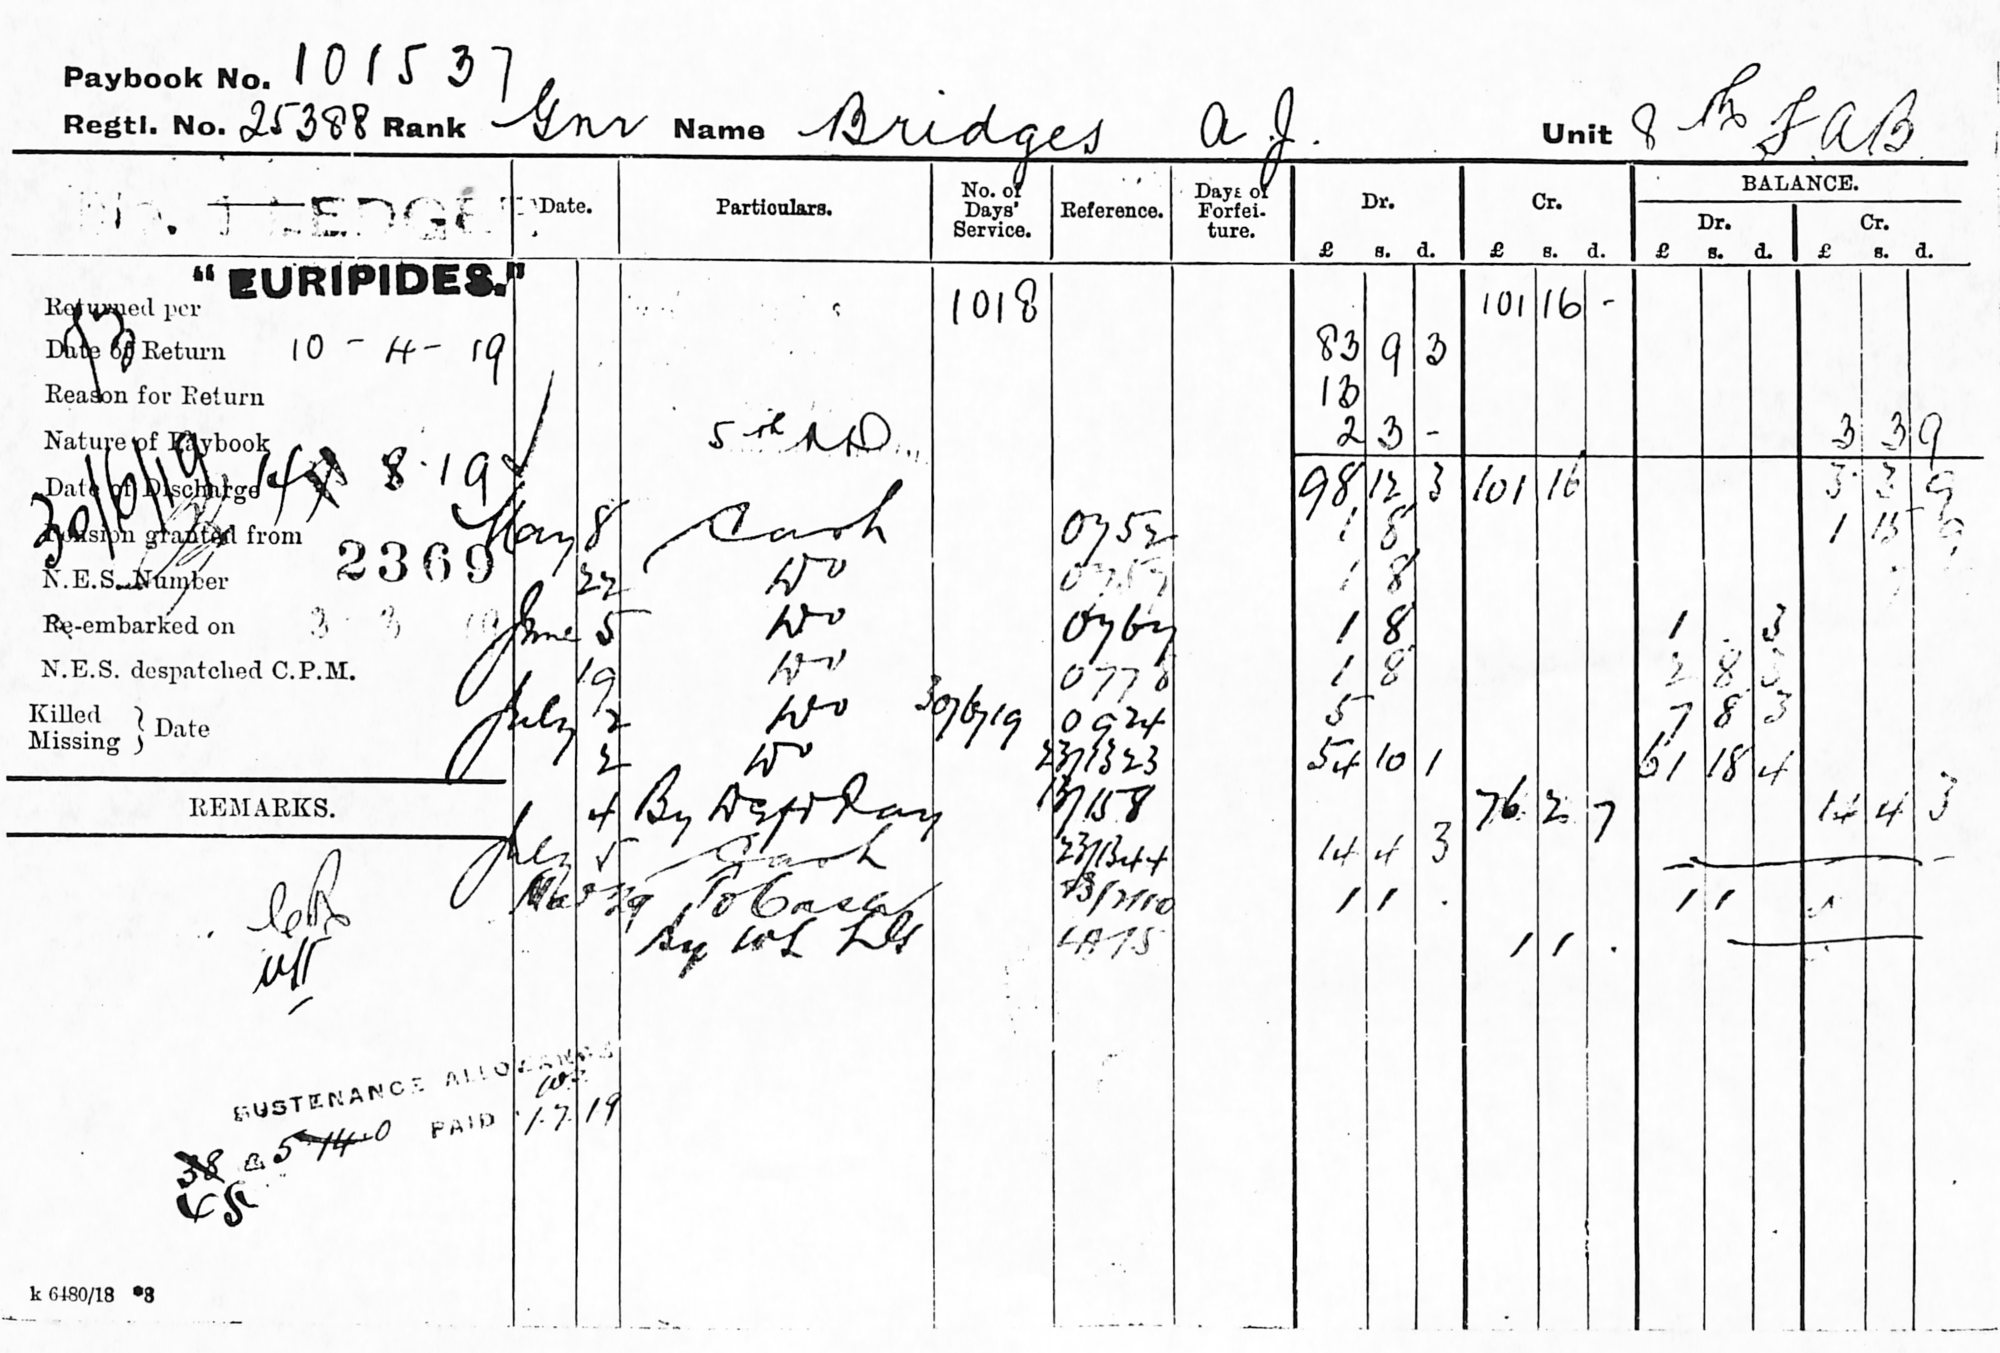 Paybook No. 101537
Regtl. No. 25388 Rank Gnr Name Bridges A. J. Unit 8th F.A.B.
LEDGE
Date. Particulars. No. of Days' Service. Reference. Days of Forfeiture. Dr. Cr. BALANCE.
Dr. Cr.
£ s. d. £ s. d. £ s. d. £ s. d.
"EURIPIDES."
Returned per 1018 101 16 -
Date of Return 10-4-19 83 9 3
Reason for Return 13
Nature of Paybook 5th 2 3 - 3 3 9
Date of Discharge 14 8.19 98 12 3 101 16 3 3 9
30/6/19
Pension granted from May 8 Cash 0752 1 8 1 15 9
N.E.S. Number 2369 22 Do 1 8
Re-embarked on June 5 Do 0767 1 8 1 . 3
N.E.S. despatched C.P.M. 19 Do 0778 1 8 2 8 3
Killed Missing } Date July 2 Do 30/6/19 0924 5 7 8 3
2 Do 23/1323 54 10 1 61 18 4
REMARKS. 4 By Defd Pay 13/158 76 2 7 14 4 3
July 5 Cash 23/1344 14 4 3 -
29 To Cash 1 1 . 1 1
By 1 1 .
SUSTENANCE ALLOWANCE
38 @ 5-14-0 PAID 1.7.19
45
k 6480/18 *3